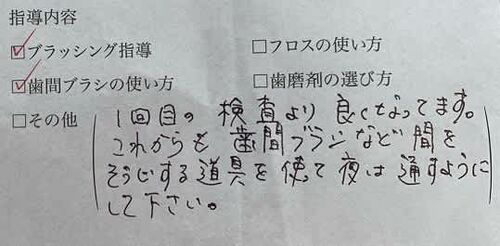 指導内容
☑ブラッシング指導 □フロスの使い方
☑歯間ブラシの使い方 □歯磨剤の選び方
□その他 (1回目の検査より良くなってます。
これからも歯間ブラシなど間を
そうじする道具を使って夜は通すように
して下さい。)